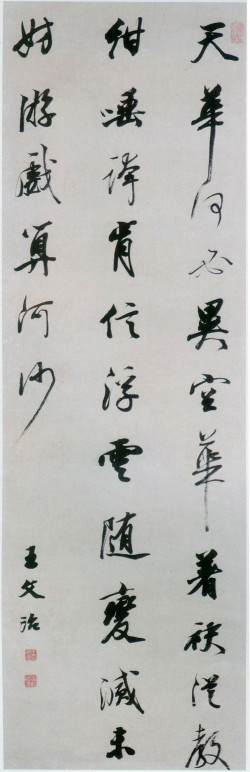 天華何必異空華着袂從教
紺唾誇肯信浮雲隨變滅未
妨游戲算河沙
王文治